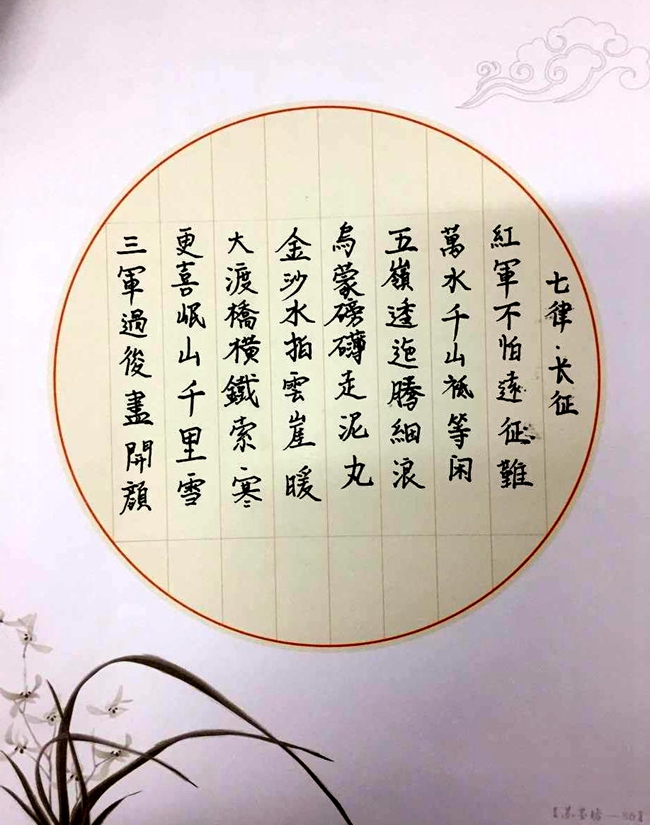 七律·长征
紅軍不怕遠征難
萬水千山祗等闲
五嶺透迤騰細浪
烏蒙磅礴走泥丸
金沙水拍雲崖暖
大渡橋橫鐵索寒
更喜岷山千里雪
三軍過後盡開顔